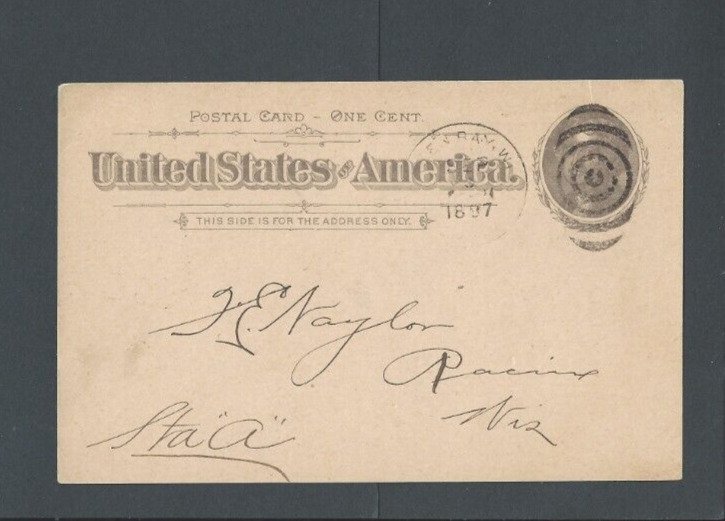 POSTAL CARD - ONE CENT.
United States of America.
THIS SIDE IS FOR THE ADDRESS ONLY.
BAY, WIS
1897
J. E. Naylor
Racine
Wis
Sta "A"